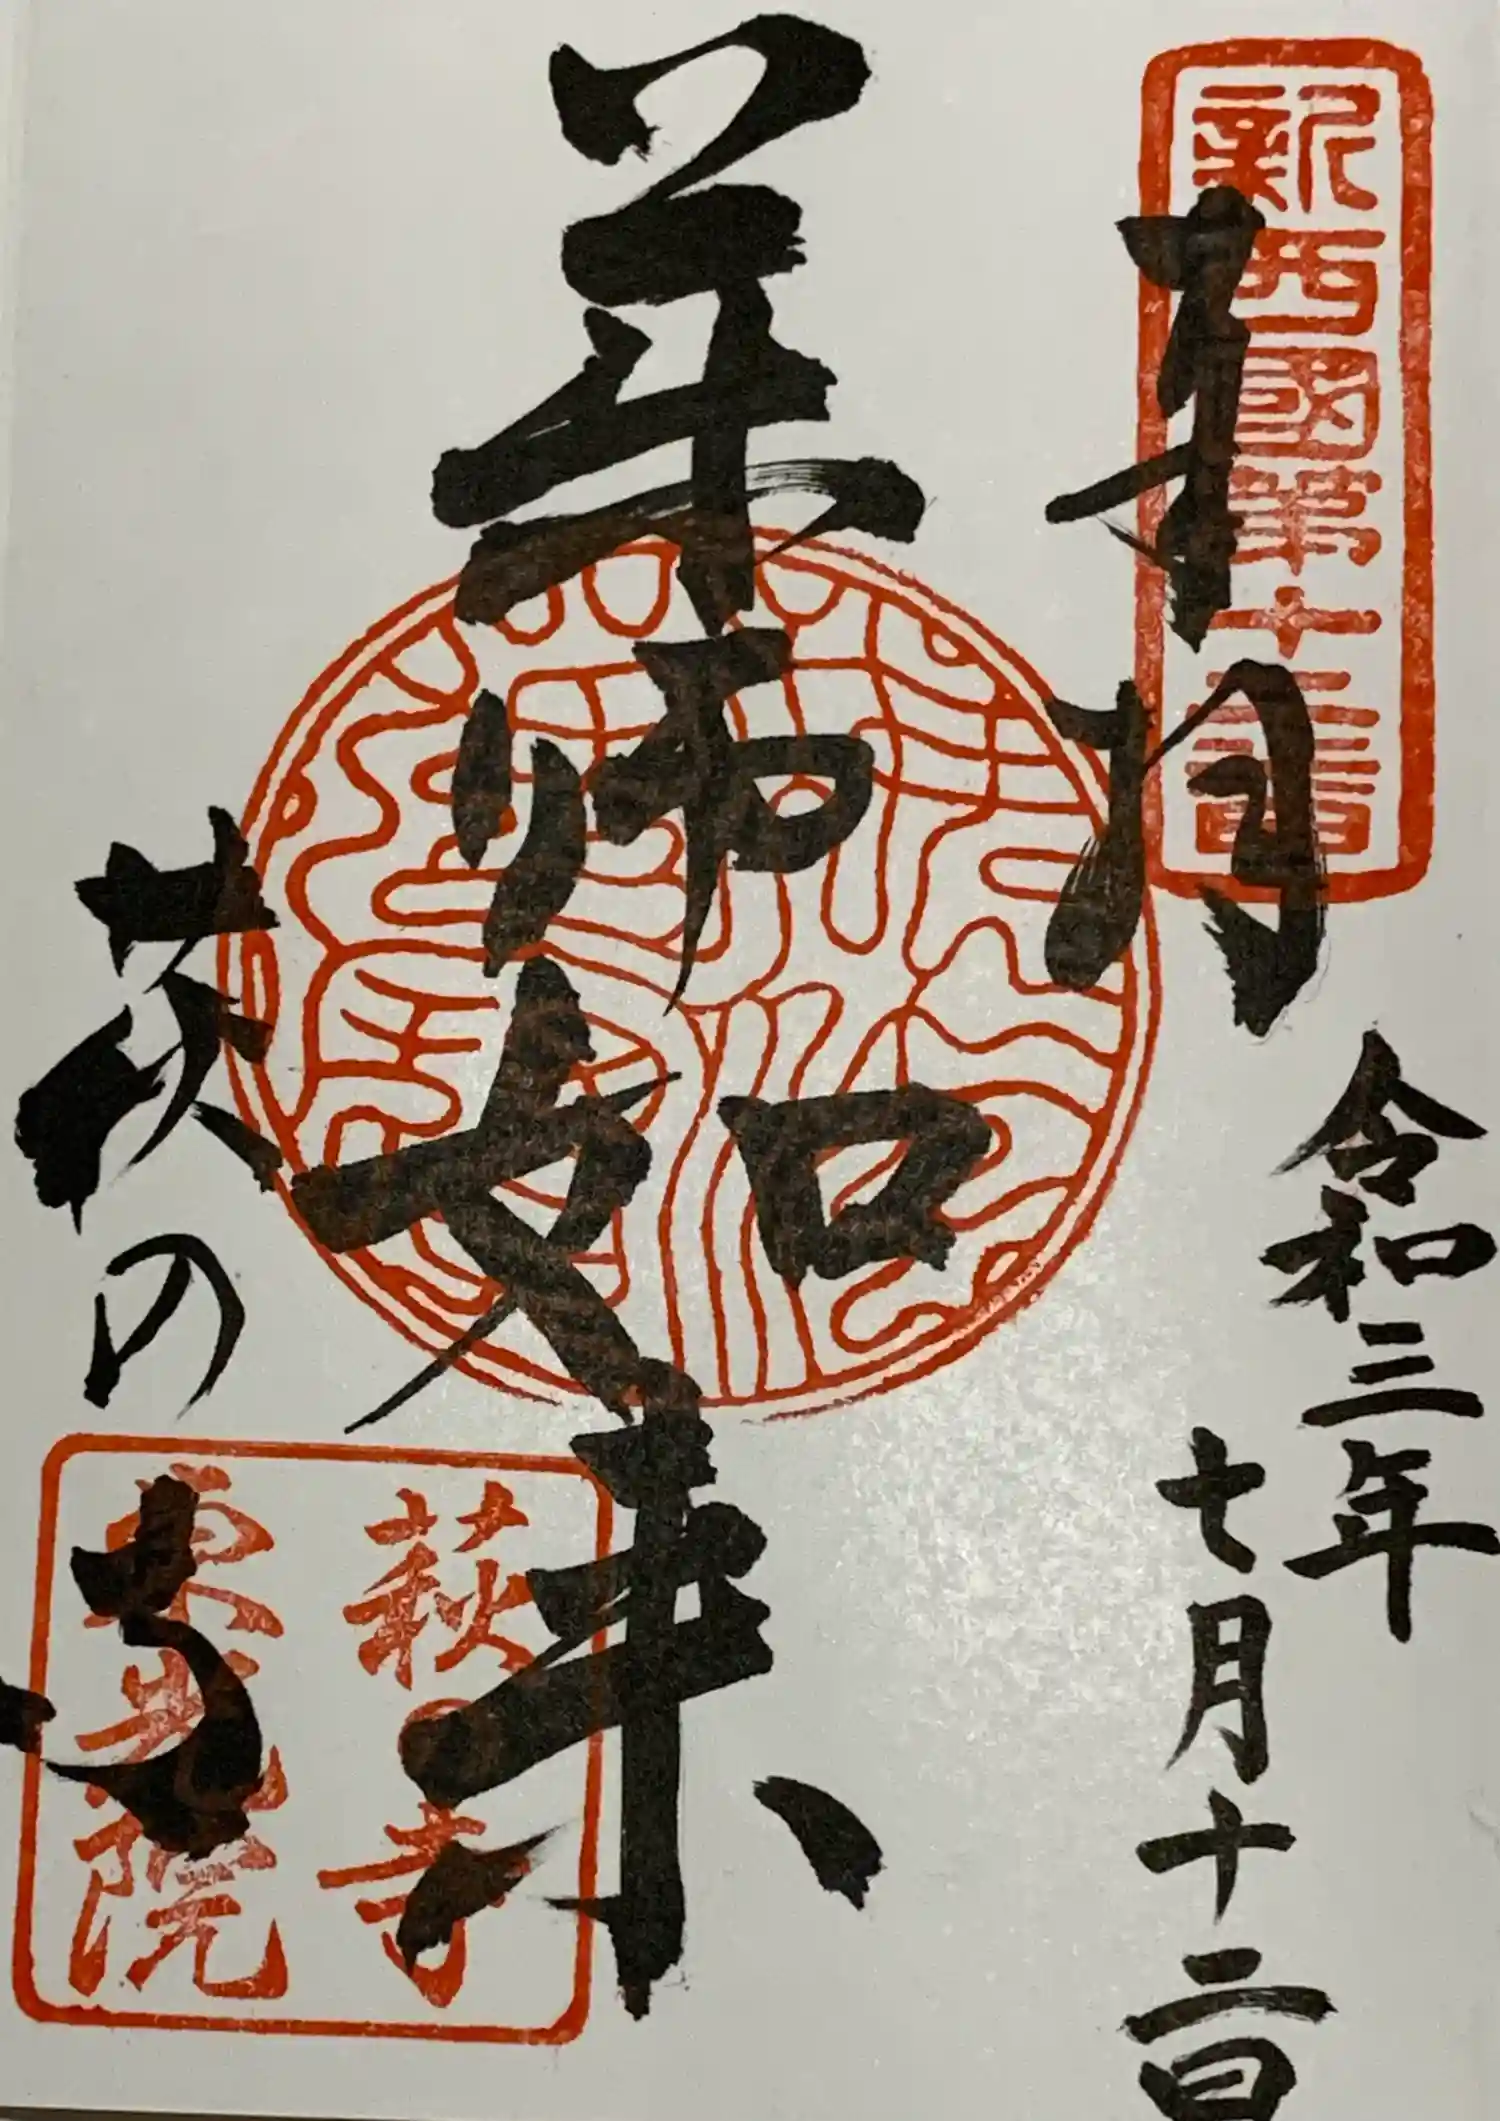 新西國第十二番
奉拝
令和三年
七月十二日
薬師如来
萩の寺
萩の寺
東光院